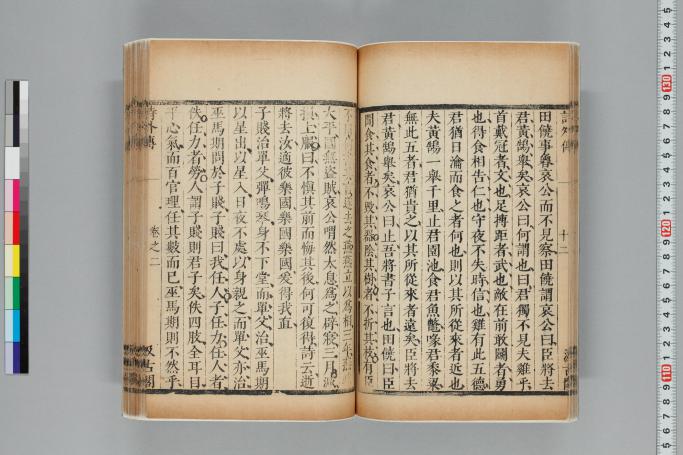 田饒事魯哀公而不見察田饒謂哀公曰臣將去
君黃鵠舉矣哀公曰何謂也曰君獨不見夫雞乎
首戴冠者文也足搏距者武也敵在前敢鬭者勇
也得食相告仁也守夜不失時信也雞有此五德
君猶日瀹而食之者何也則以其所從來者近也
夫黃鵠一舉千里止君園池食君魚鱉啄君黍粱
無此五者君猶貴之以其所從來者遠矣臣將去
君黃鵠舉矣哀公曰止吾將書子言也田饒曰臣
聞食其食者不毀其器陰其樹者不折其枝有臣
立以為相三年燕
大平國無盜賊哀公喟然太息為之辟寢三月減
損上服曰不慎其前而悔其後何可復得詩云逝
將去汝適彼樂國樂國樂國爰得我直
子賤治單父彈鳴琴身不下堂而單父治巫馬期
以星出以星入日夜不處以身親之而單父亦治
巫馬期問於子賤子賤曰我任人子任力任人者
佚任力者勞人謂子賤則君子矣佚四肢全耳目
平心氣而百官理任其數而已巫馬期則不然乎
詩外傳
卷之二
汲古閣
詩外傳
十二
汲古閣